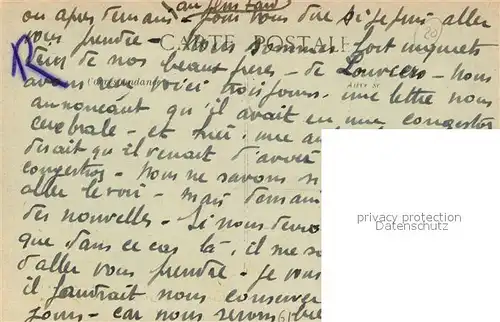 au plus tard
ou après demain - pour vous dire si je puis aller
vous prendre - Nous sommes fort inquiets
CARTE POSTALE
de nos beaux frères - de Louviers - Nous
Correspondance
avons reçu voici trois jours, une lettre nous
annonçant qu'il avait eu une congestion
cérébrale - et hier, une
disait qu'il venait d'avoir
congestion - Nous ne savons si
aller le voir - mais demain
des nouvelles - Si nous
que dans ce cas là, il me
d'aller vous prendre - Je vous
il faudrait nous conserver
jours - car nous serons
privacy protection
Datenschutz